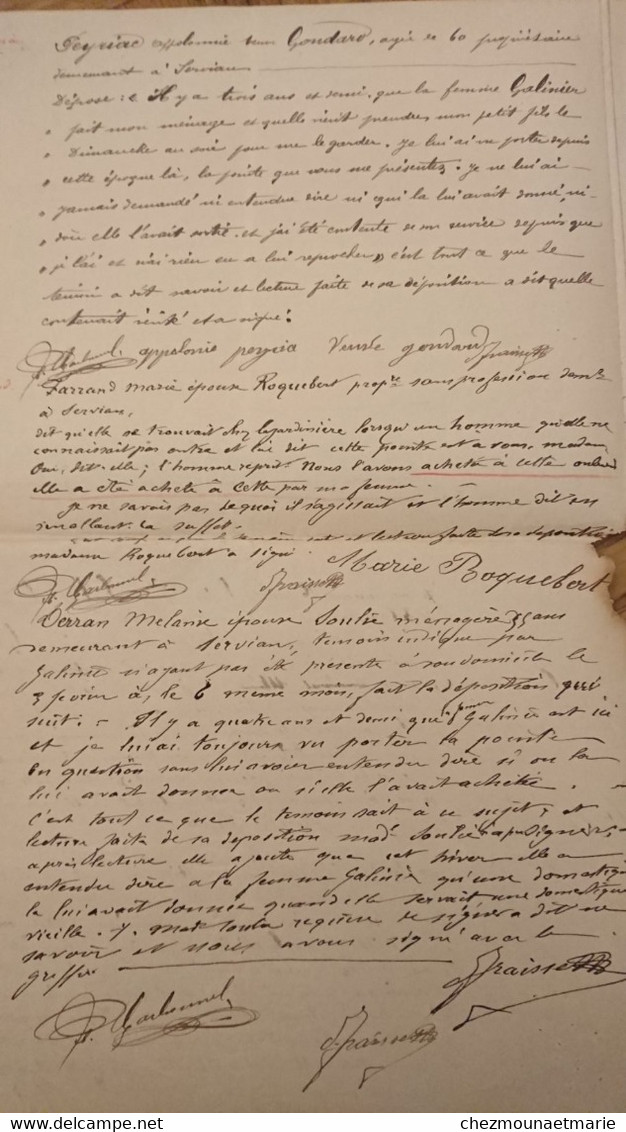 Peyriac appolonnie veuve Goudard, agée de 60 propriétaire
demeurant à Servian
Dépose : « Il y a trois ans et demi, que la femme Galinier
" fait mon ménage et quelle vient prendre mon petit fils le
" Dimanche au soir pour me le garder. Je lui ai vu porter depuis
" cette époque là, la pointe que vous me présentez. Je ne lui ai
" jamais demandé ni entendu dire ni qui la lui avait donné, ni
" d'où elle l'avait sorti. et j'ai été contente de son service depuis que
" je l'ai et n'ai rien eu a lui reprocher » c'est tout ce que le
temoin a dit savoir et lecture faite de sa déposition a dit quelle
contenait vérité et a signé.
appolonie peyria Veuve goudard Fraisse
Farrand marie épouse Roquebert propre sans profession demte
à Servian,
dit qu'elle se trouvait chez la jardinière lorsqu'un homme qu'elle ne
connaissait pas entra et lui dit cette pointe est a vous, madame
Oui, dit-elle; l'homme reprit. Nous l'avons acheté à Cette
elle a été acheté à Cette par ma femme.
Je ne savais pas de quoi il s'agissait et l'homme dit en
s'en allant ça suffit.
et lecture faite de sa déposition
madame Roquebert a signé Marie Roquebert
Fraisse
Derran Melanie épouse Soulié ménagère 35 ans
demeurant à Servian, temoin indiqué par
Galinié n'ayant pas été présente à son domicile le
5 février à, le 6 même mois, fait la déposition qui
suit. – Il y a quatre ans et demi que Galinié est ici
et je lui ai toujours vu porter la pointe
en question sans lui avoir entendu dire si on la
lui avait donnée ou si elle l'avait achetée.
C'est tout ce que le temoin sait à ce sujet; et
lecture faite de sa déposition made Soulié
après lecture elle ajoute que cet hiver elle a
entendu dire a la femme Galinié qu'une domestique
la lui avait donnée quand elle servait une domestique
vieille. made Soulié requise de signer a dit ne
savoir et nous avons signé avec le
greffier.
Fraisse
Fraisse
chezmounaetmarie